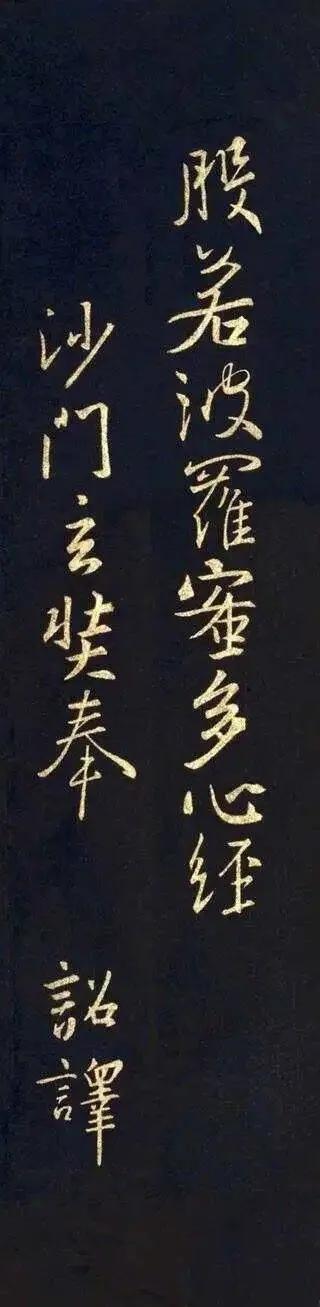 般若波羅蜜多心経
沙門玄奘奉 詔譯